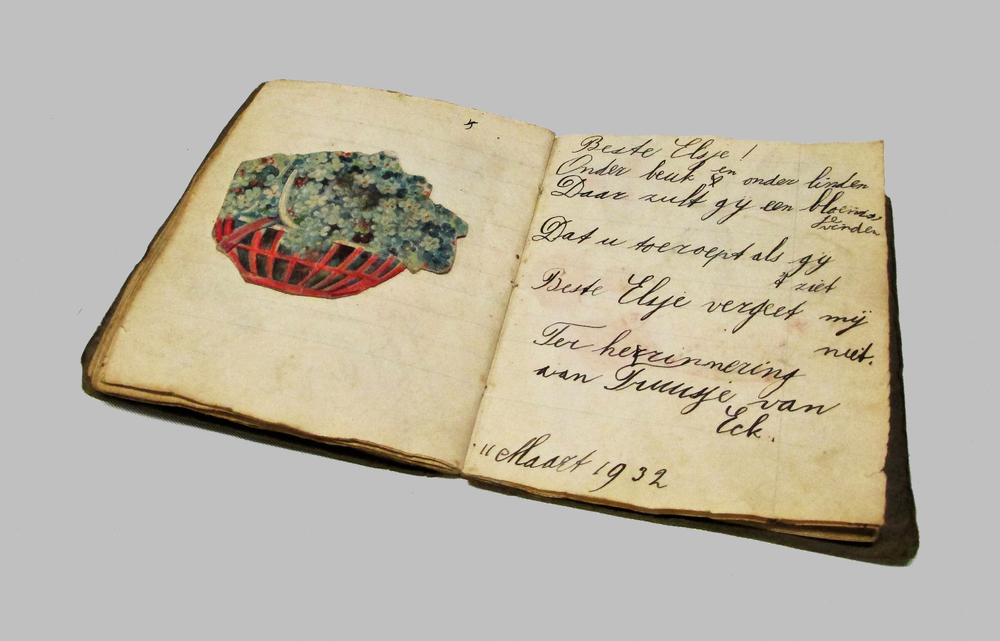 Beste Elsje!
Onder beuk en onder linden
Daar zult gy een bloems
vinden
Dat u toeroept als gy
ziet
Beste Elsje vergeet mij
niet.
Ter herrinnering
aan Truusje van
Eck.
11 Maart 1932